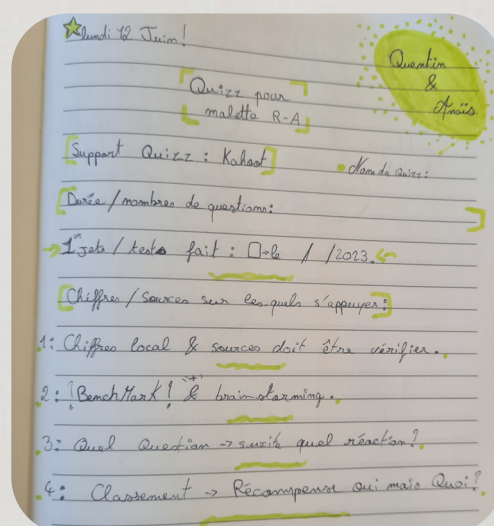 Lundi 12 Juin!
Quentin
&
Anaïs
Quizz pour
malette R-A
Support Quizz : Kahoot
Nom du Quizz :
Durée / nombres de questions :
1er Jets / tests fait : □→le / /2023.
Chiffres / Sources sur lesquels s'appuyer :
1: Chiffres local & sources doit être vérifier.
2: !BenchMark! & brainstorming.
3: Quel Question → suscite quel réaction?
4: Classement → Récompense oui mais Quoi?